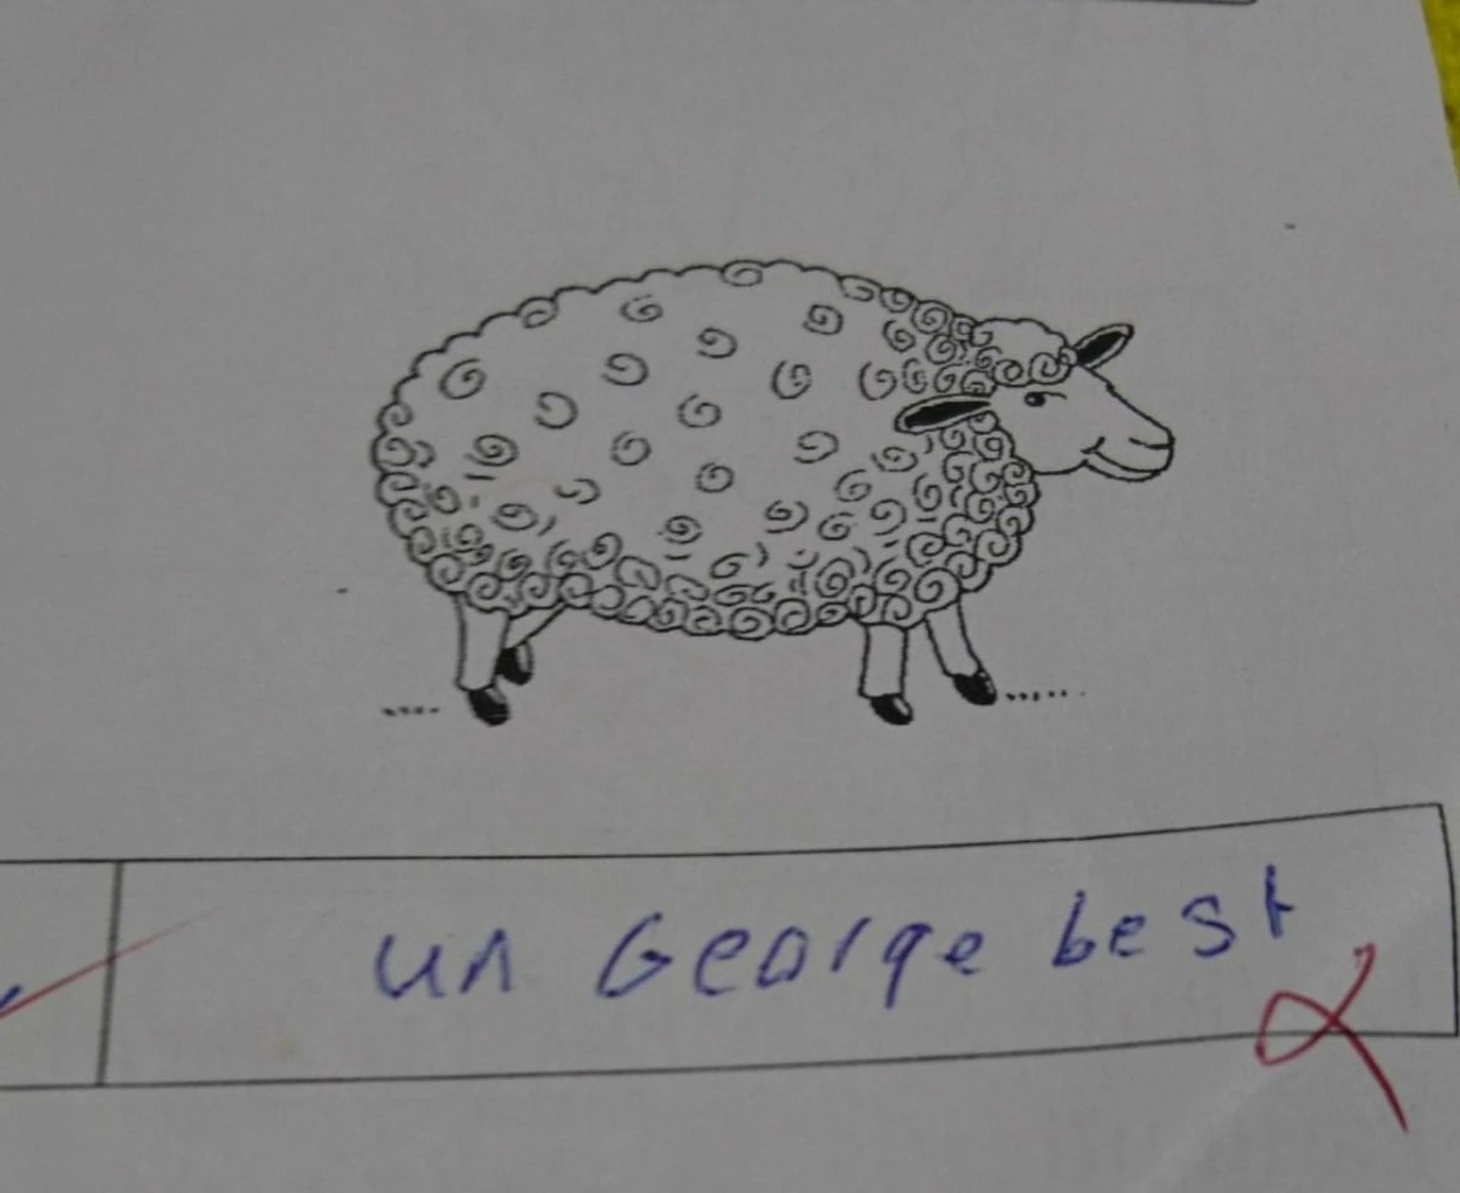 un George best